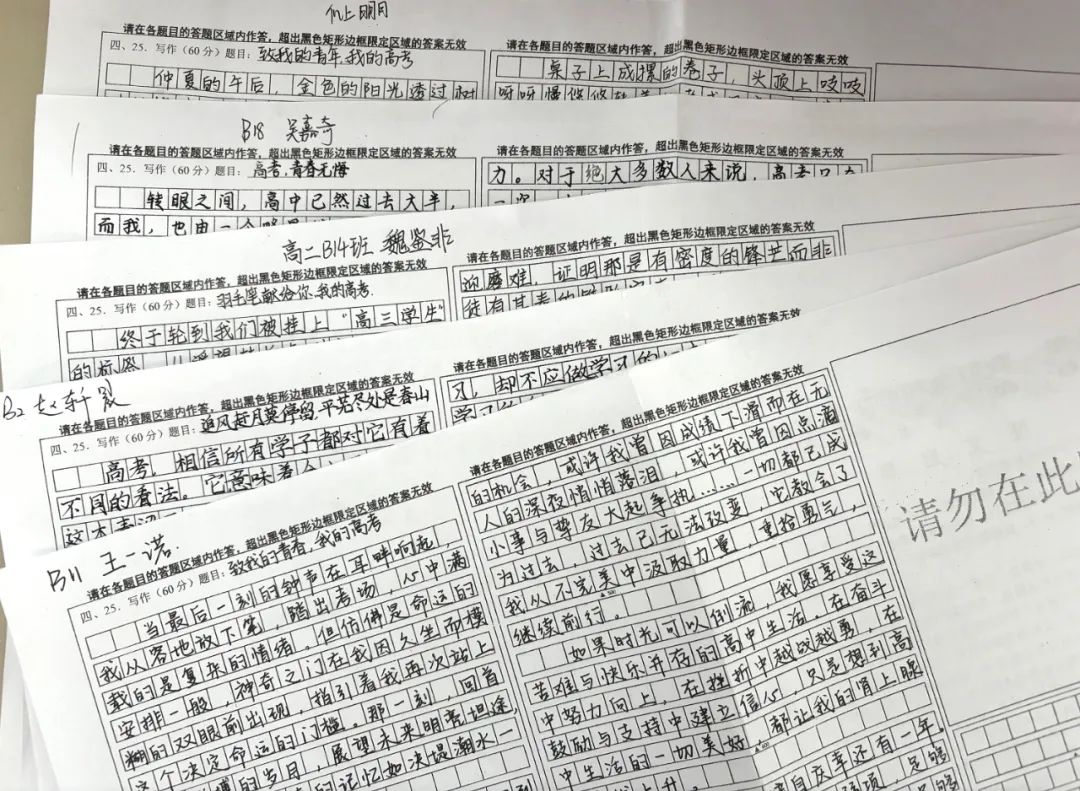 请在各题目的答题区域内作答，超出黑色矩形边框限定区域的答案无效
四、25．写作（60分）题目：致我的青年，我的高考
仲夏的午后，金色的阳光透过树
请在各题目的答题区域内作答，超出黑色矩形边框限定区域的答案无效
桌子上成摞的卷子，头顶上吱吱
呀呀慢悠悠
B18 吴嘉奇
请在各题目的答题区域内作答，超出黑色矩形边框限定区域的答案无效
四、25．写作（60分）题目：高考，青春无悔
转眼之间，高中已然过去大半，
而我，也由一个
请在各题目的答题区域内作答，超出黑色矩形边框限定区域的答案无效
力。对于绝大多数人来说，高考只
高二B14班 魏鉴非
请在各题目的答题区域内作答，超出黑色矩形边框限定区域的答案无效
四、25．写作（60分）题目：羽毛笔，献给你，我的高考.
终于轮到我们被挂上“高三学生”
的标签
请在各题目的答题区域内作答，超出黑色矩形边框限定区域的答案无效
迎磨难，证明那是有密度的锋芒而非
徒有其表的
B2 赵轩
请在各题目的答题区域内作答，超出黑色矩形边框限定区域的答案无效
四、25．写作（60分）题目：追风赶月莫停留，平芜尽处是春山
高考，相信所有学子都对它有着
不同的看法。它意味着
请在各题目的答题区域内作答，超出黑色矩形边框限定区域的答案无效
习，却不应做学习的
B11 王一诺.
请在各题目的答题区域内作答，超出黑色矩形边框限定区域的答案无效
四、25．写作（60分）题目：致我的青春，我的高考
当最后一刻的钟声在耳畔响起，
我从容地放下笔，踏出考场，心中满
载的是复杂的情绪。但仿佛是命运的
安排一般，神奇之门在我因久坐而模
糊的双眼前出现，指引着我再次站上
这个决定命运的门槛。那一刻，回首
的岁月，展望未来明亮坦途，
的记忆如决堤潮水一
请在各题目的答题区域内作答，超出黑色矩形边框限定区域的答案无效
的机会，或许我曾因成绩下滑而在无
人的深夜悄悄落泪，或许我曾因点滴
小事与挚友大起争执……一切都已成
为过去，过去已无法改变，它教会了
我从不完美中汲取力量，重拾勇气，
继续前行。
如果时光可以倒流，我愿享受这
苦难与快乐并存的高中生活。在奋斗
中努力向上，在挫折中越战越勇，在
鼓励与支持中建立信心，只是想到高
中生活的一切美好，都让我的肾上腺
上升。
庆幸还有一年
足够
请勿在此